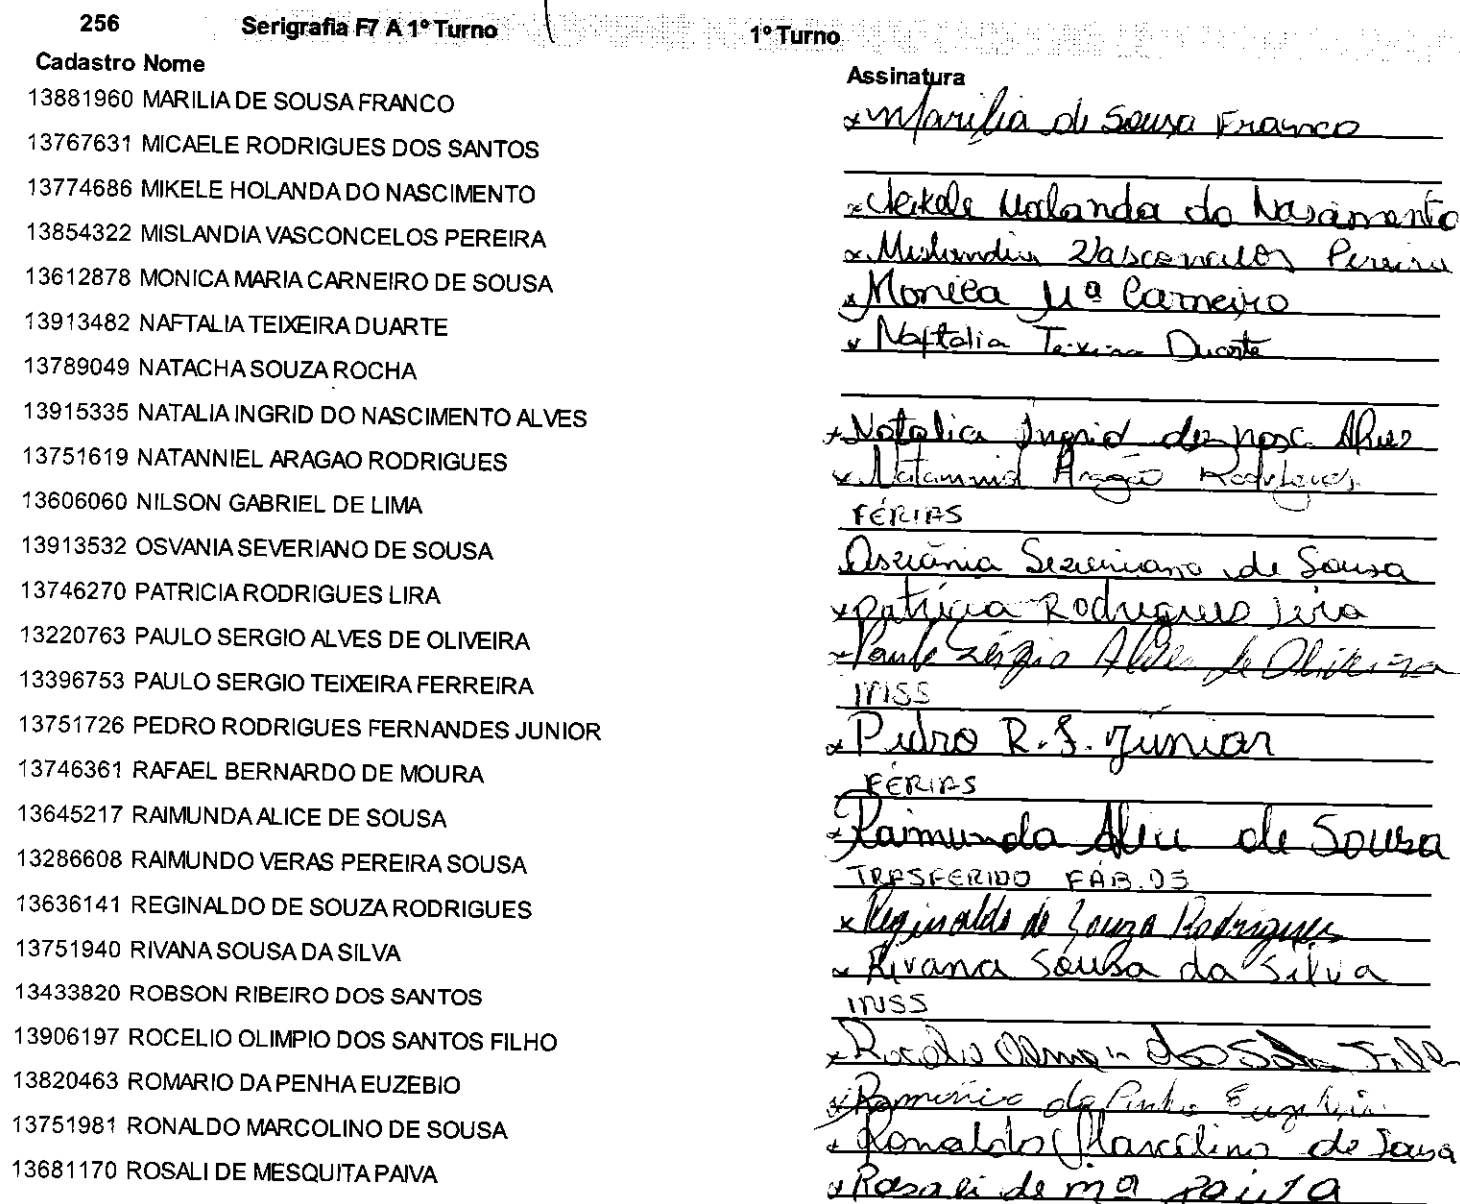 256 Serigrafia F7 A 1º Turno 1º Turno
Cadastro Nome Assinatura
13881960 MARILIA DE SOUSA FRANCO x Marilia de Sousa Franco
13767631 MICAELE RODRIGUES DOS SANTOS
13774686 MIKELE HOLANDA DO NASCIMENTO x Mikele Holanda do Nascimento
13854322 MISLANDIA VASCONCELOS PEREIRA x Mislandia Vasconcelos Pereira
13612878 MONICA MARIA CARNEIRO DE SOUSA x Monica Mª Carneiro
13913482 NAFTALIA TEIXEIRA DUARTE x Naftalia Teixeira Duarte
13789049 NATACHA SOUZA ROCHA
13915335 NATALIA INGRID DO NASCIMENTO ALVES x Natalia Ingrid do nasc Alves
13751619 NATANNIEL ARAGAO RODRIGUES x Natanniel Aragão Rodrigues
13606060 NILSON GABRIEL DE LIMA FÉRIAS
13913532 OSVANIA SEVERIANO DE SOUSA Osvânia Severiano de Sousa
13746270 PATRICIA RODRIGUES LIRA x Patrícia Rodrigues Lira
13220763 PAULO SERGIO ALVES DE OLIVEIRA x Paulo Sérgio Alves de Oliveira
13396753 PAULO SERGIO TEIXEIRA FERREIRA INSS
13751726 PEDRO RODRIGUES FERNANDES JUNIOR x Pedro R. F. Júnior
13746361 RAFAEL BERNARDO DE MOURA FÉRIAS
13645217 RAIMUNDA ALICE DE SOUSA x Raimunda Alice de Sousa
13286608 RAIMUNDO VERAS PEREIRA SOUSA TRASFERIDO FÁB.05
13636141 REGINALDO DE SOUZA RODRIGUES x Reginaldo de Souza Rodrigues
13751940 RIVANA SOUSA DA SILVA x Rivana Sousa da Silva
13433820 ROBSON RIBEIRO DOS SANTOS INSS
13906197 ROCELIO OLIMPIO DOS SANTOS FILHO x Rocelio dos Filho
13820463 ROMARIO DA PENHA EUZEBIO x Romário da Penha Euzebio
13751981 RONALDO MARCOLINO DE SOUSA x Ronaldo Marcolino de Sousa
13681170 ROSALI DE MESQUITA PAIVA x Rosali de mª paiva